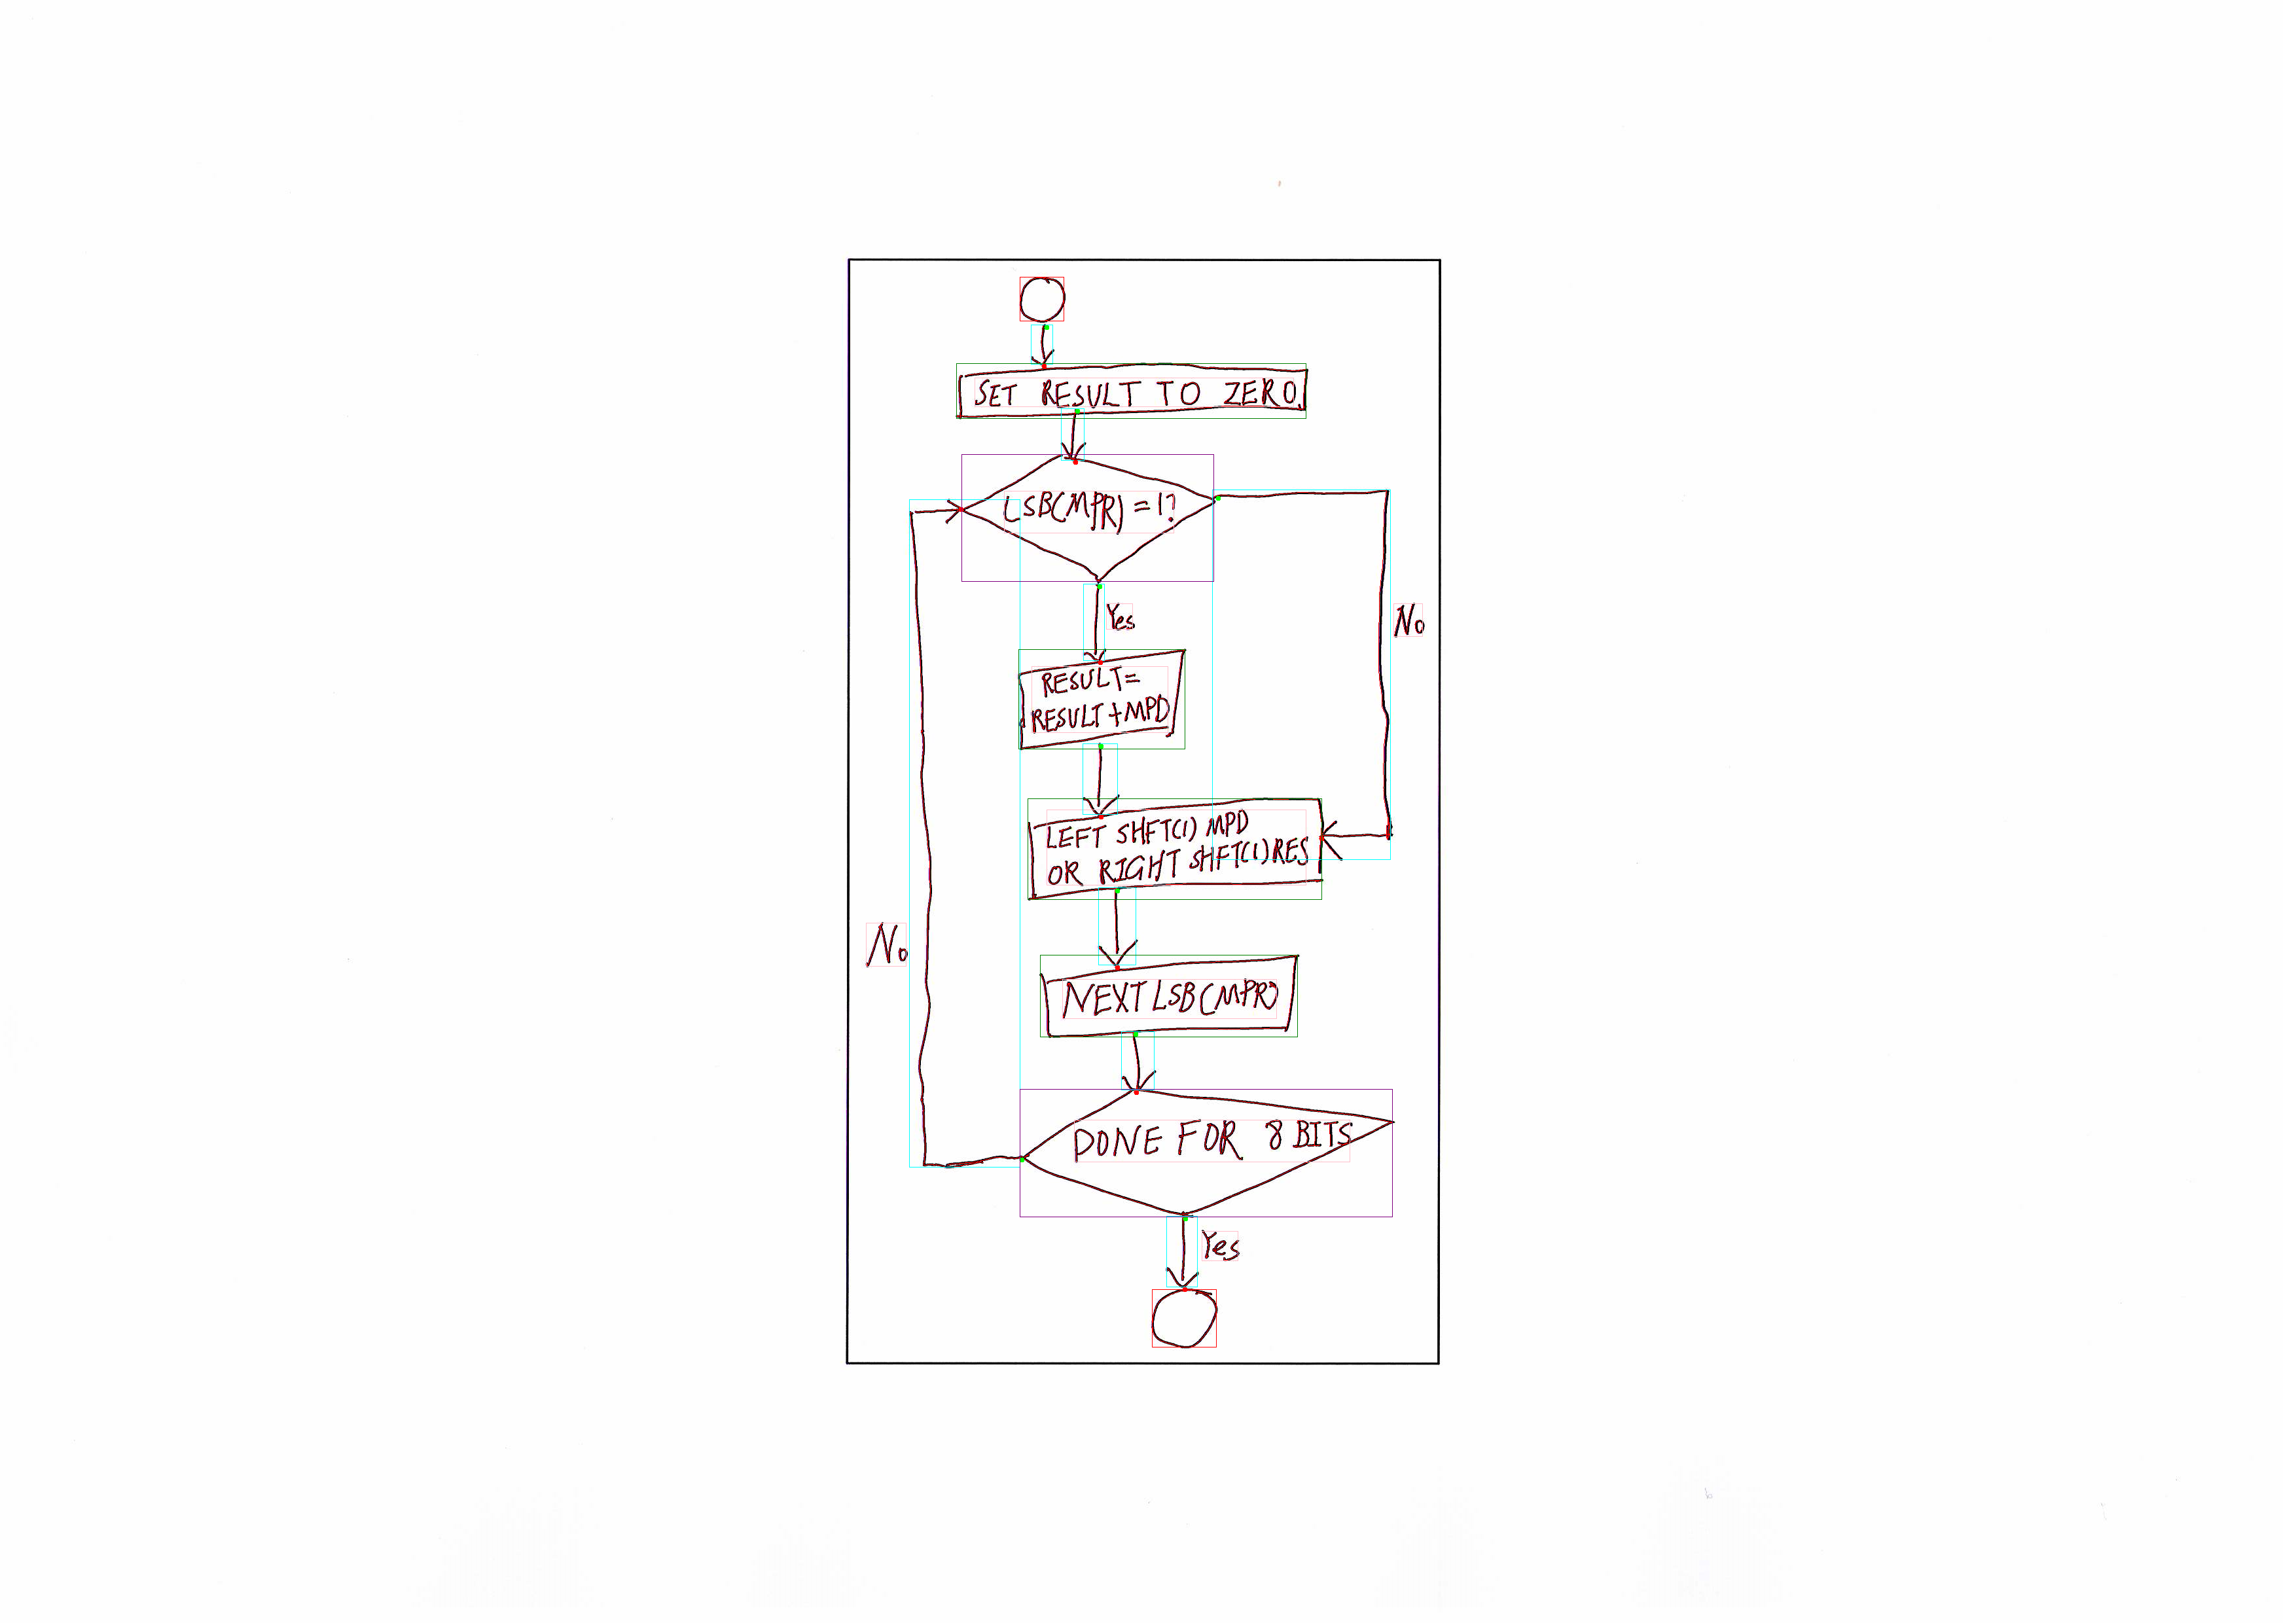 SET RESULT TO ZERO
LSB(MPR) = 1?
Yes
No
RESULT=
RESULT+MPD
LEFT SHFT(1) MPD
OR RIGHT SHFT(1) RES
No
NEXT LSB(MPR)
DONE FOR 8 BITS
Yes